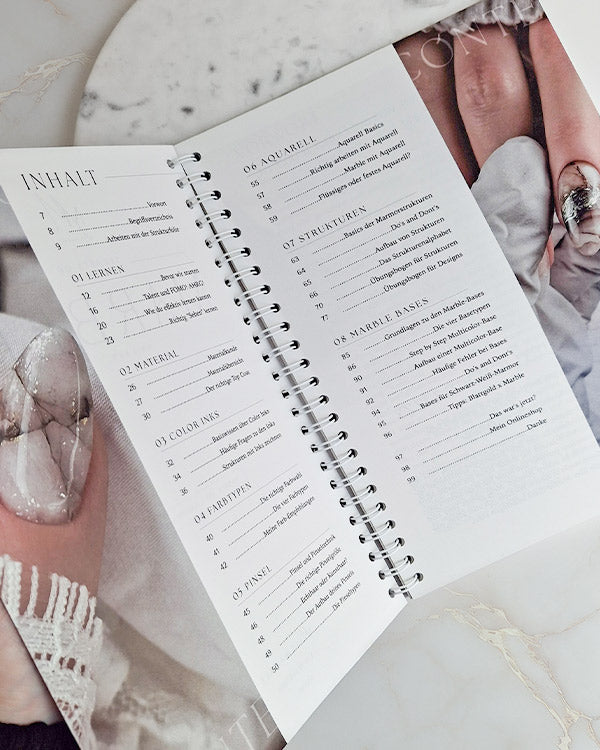 INHALT
7 Vorwort
8 Begriffsverzeichnis
9 Arbeiten mit der Strukturfolie
01 LERNEN
12 Bevor wir starten
16 Talent und FOMO? AMIGO
20 Wie du effektiv lernen kannst
23 Richtig "Sehen" lernen
02 MATERIAL
26 Materialkunde
27 Materialübersicht
30 Der richtige Top Coat
03 COLOR INKS
32 Basiswissen über Color Inks
34 Häufige Fragen zu den Inks
36 Strukturen mit Inks zeichnen
04 FARBTYPEN
40 Die richtige Farbwahl
41 Die vier Farbtypen
42 Meine Farb-Empfehlungen
05 PINSEL
45 Pinsel und Pinseltechnik
46 Die richtige Pinselgröße
48 Echthaar oder Kunsthaar?
49 Der Aufbau deines Pinsels
50 Die Pinseltypen
06 AQUARELL
55 Aquarell Basics
57 Richtig arbeiten mit Aquarell
58 Marble mit Aquarell
59 Flüssiges oder festes Aquarell?
07 STRUKTUREN
63 Basics der Marmorstrukturen
64 Do's and Dont's
65 Aufbau von Strukturen
66 Das Strukturenalphabet
70 Übungsbogen für Strukturen
77 Übungsbogen für Designs
08 MARBLE BASES
85 Grundlagen zu den Marble-Bases
86 Die vier Basetypen
90 Step by Step Multicolor-Base
91 Aufbau einer Multicolor-Base
92 Häufige Fehler bei Bases
94 Do's and Dont's
95 Bases für Schwarz-Weiß-Marmor
96 Tipps: Blattgold x Marble
97 Das war's jetzt?
98 Mein Onlineshop
99 Danke